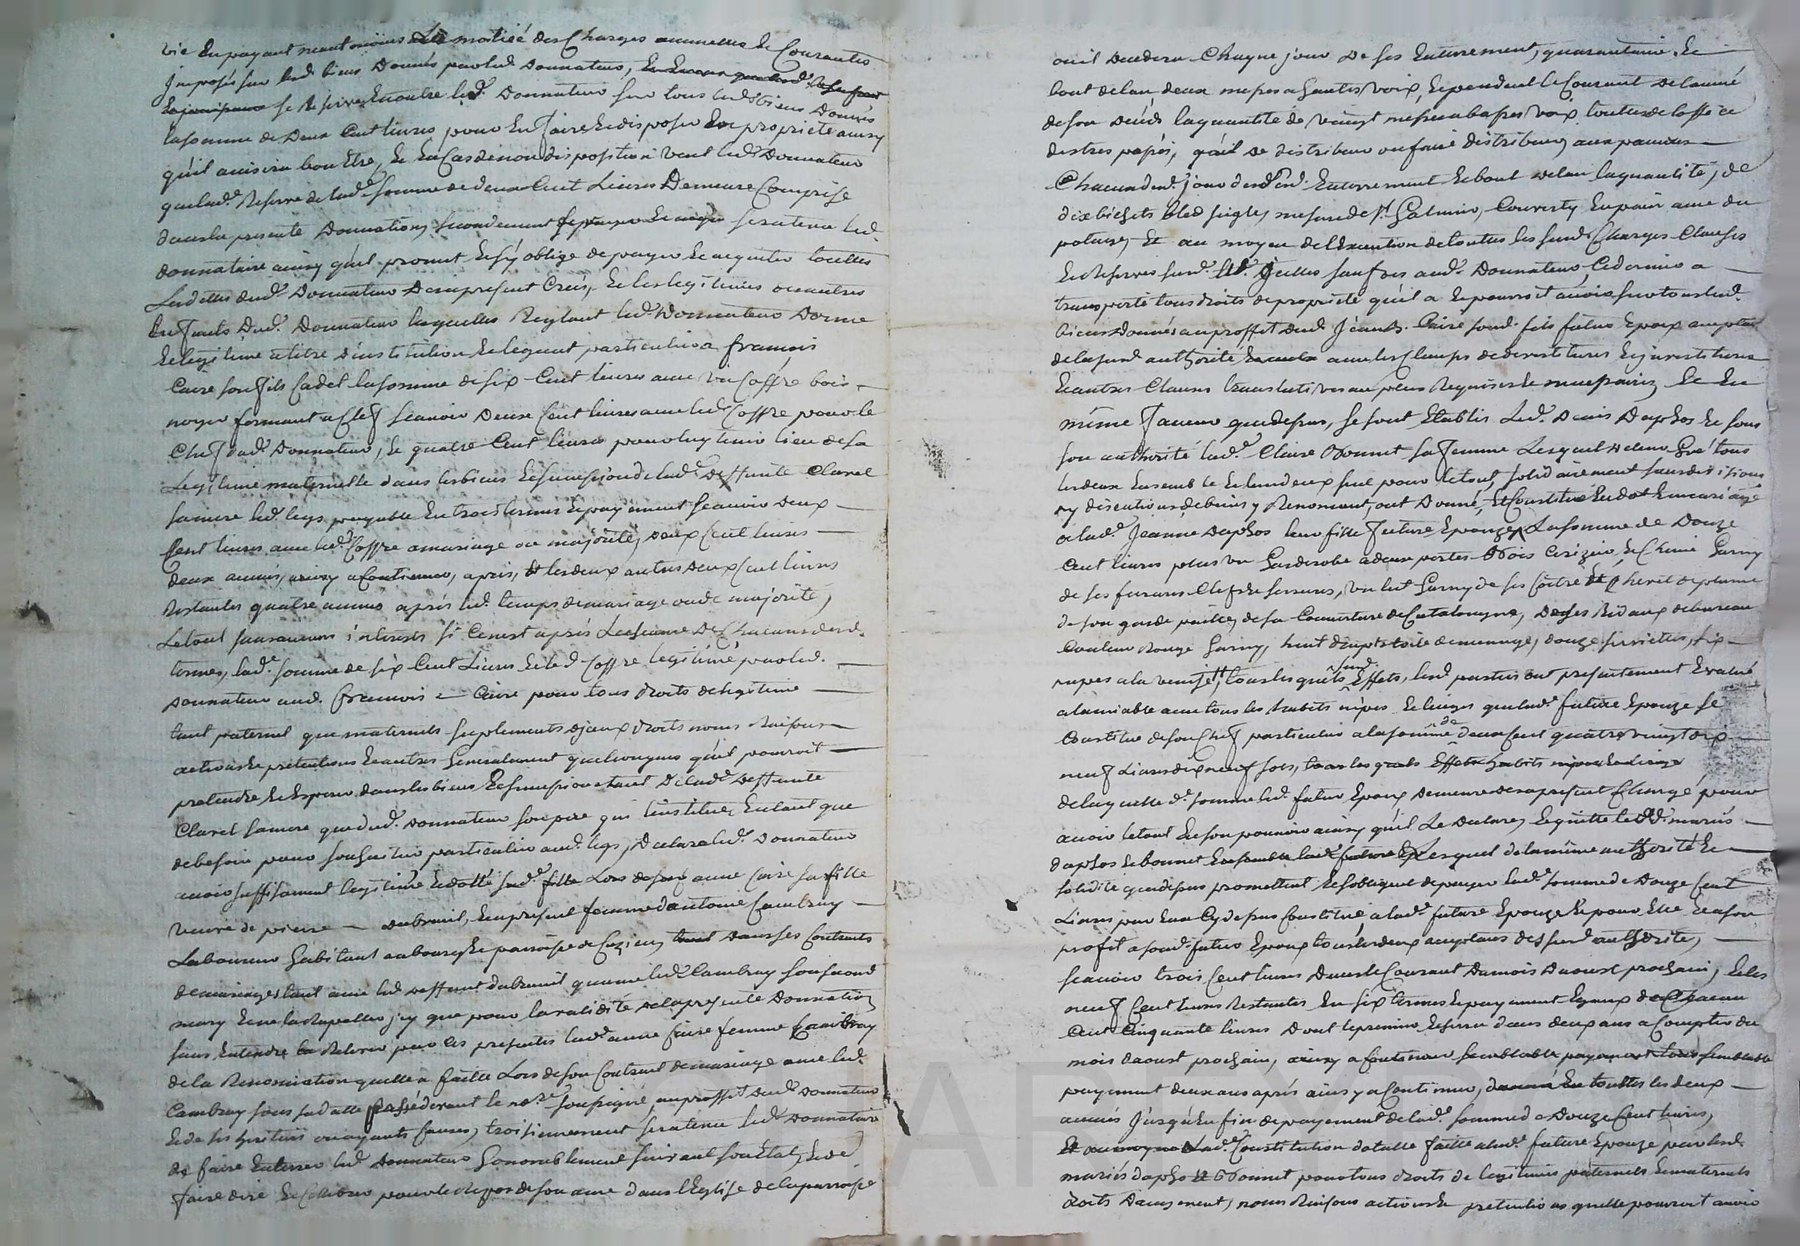 vie En payant neantmoins la moitié des Charges annuelles Et Courantes
Imposés sur lesd. biens Donnés par led. Donnateur,
se Réserve Encontre led. Donnateur sur tous lesd. biens Donnés
la somme de Deux Cent livres pour En faire Et disposer En propriété ainsy
qu'il avisera bon Etre, Et En Cas de non disposition veut led. Donnateur
que lad. Reserve de lad. somme de deux Cent Livres Demeure Comprise
dans la presente Donnation, secondement sera tenu led.
donnataire ainsy qu'il promet Et s'y oblige de payer Et acquiter toutes
Les dettes dud. Donnateur De si present Créés, Et les legitimes aux autres
Enfants Dud. Donnateur lesquelles Reglant led. Donnateur Donne
Et legitime a titre d'institution Et legat particulier a francois
Caire son fils Cadet la somme de six Cent livres avec un Coffre bois
noyer fermant a Clef scavoir Deux Cent livres avec led. Coffre pour le
Chef dud. Donnateur, Et quatre Cent livres pour luy tenir lieu de sa
Legitime maternelle dans les biens Et succession de lad. Deffunte Claret
sa mere led. legs payable En trois termes Et payement scavoir deux
Cent livres avec led. Coffre a mariage ou majorité, deux Cent livres
deux années, ainsy a Continuer, après, Et les deux autres deux Cent livres
Restantes quatre années après led. temps de mariage ou de majorité,
Le tout sans aucuns interests si Ce n'est après L'escheance De Chacun desd.
termes, lad. somme de six Cent Livres Et led. Coffre legitime par led.
Donnateur aud. francois Caire pour tous droits de legitime
tant paternel que maternels supplements d'yceux droits noms Raisons
actions Et pretentions Et autres Generalement quelconques qu'il pourroit
pretendre Et Esperer dans les biens Et succession tant De lad. Deffunte
Claret sa mere que dud. Donnateur son pere qui l'institue En tant que
de besoin pour son heritier particulier aud. legs, Declare led. Donnateur
avoir suffisament legitimé Et dotté sad. fille Lors de anne Caire sa fille
veuve de pierre dubreuil, En present femme d'antoine Cambray
Laboureur habitant au bourg Et paroisse de Cuzieu, dans ses Contrats
de mariage tant avec led. deffunt dubreuil qu'avec led. Cambray son second
mary Et ne la Rapelle icy que pour la validité de la presente Donnation
sans Entendre la Relever par Ces presentes lad. anne Caire femme Cambray
de la Renonciation qu'elle a faitte Lors de son Contrat de mariage avec led.
Cambray sous sa datte passé devant le no.re soussigné au proffit dud. Donnateur
Et de ses heritiers ou ayants Causes, troisiemement sera tenu led. Donnataire
de faire Enterrer led. Donnateur honorablement suivant son Etat, Et de
faire dire Et Celebrer pour le Repos de son ame dans l'Eglise de la paroisse
ou il Decedera Chaque jour De ses Enterrement, quarantaine, Et
bout de l'an deux messes a hautes voix, Et pendant le Courant de l'année
de son décés la quantité de vingt messes a basses voix, toutes de l'office
des trepassés, qu'il de distribuer ou faire distribuer, aux pauvres
Chacun dud. jour desd. Enterrement Et bout de l'an la quantité, de
dix bichets bled seigle, mesure de St Galmier, Convertis En pain avec du
potage, Et au moyen de l'Execution de toutes les susd. Charges Clauses
Et Reserves sauf Icelles aud. Donnateur, Ce dernier a
transporté tous droits de propriété qu'il a Et pourroit avoir sur tous lesd.
biens Donnés au proffit dud. Jean B. Caire son d. fils futur Epoux acceptant
de la susd. authorité avec les Clauses de devestitures Et investitures
Et autres Clauses translatives au plus Requises Et necessaires, Et En
même faveur que dessus, se sont Etablis Led. Denis Daphos Et sous
son authorité lad. Claire Bonnet sa femme Lesquels de leur Gré tous
les deux Ensemble Et l'un d'eux seul pour le tout, solidairement sans division
ny discution de biens y Renoncant, ont Donné, Et Constitué En dot En mariage
a lad. Jeanne Daphos leur fille future Epouze, La somme de Douze
Cent livres plus un Garderobe a deux portes Bois Cerizier Et Chene Garny
de ses ferures Clefs Et serrures, un lit Garny de ses Coitre Et Chevet de plume
de son garde paille, de sa Couverture de Catalongne, De ses Rideaux de bureau
Couleur Rouge Garny, huit draps toile de menage, douze serviettes, six
nappes a la venise, tous lesquels susd. Effets, lesd. parties ont presentement Evalué
a l'amiable avec tous les habits nipes Et linges que lad. future Epouze se
Constitue de son Chef particulier a la somme de deux Cent quatre vingt dix
neuf Livres dix neuf sols,
de laquelle d. somme led. futur Epoux Demeure des a present Chargé pour
avoir le tout En son pouvoir ainsy qu'il Le Declare, Et quitte lesd. mariés
daphos Et bonnet Lesquels de la même authorité Et
solidité que dessus promettent Et s'obligent de payer lad. somme de Douze Cent
Livres par Eux Cy dessus Constitué a lad. future Epouze Et pour Elle Et a son
profit a son d. futur Epoux tous les deux acceptans des susd. authorité,
scavoir trois Cent livres Dans le Courant Du mois Daoust prochain, Et les
neuf Cent livres Restantes En six termes Et payement Egaux de Chacun
Cent Cinquante livres Dont le premier Echerra dans deux ans a Compter du
mois daoust prochain, ainsy a Continuer semblable
payement deux ans après ainsy a Continuer, de toutes les deux
années Jusqu'En fin de payement de lad. somme de Douze Cent livres,
Et au moyen de lad. Constitution dotalle faitte a lad. future Epouze par lesd.
mariés daphos Et Bonnet pour tous droits de legitimes paternels Et maternels
droits D'augment, noms Raisons actions Et pretentions qu'elle pourroit avoir